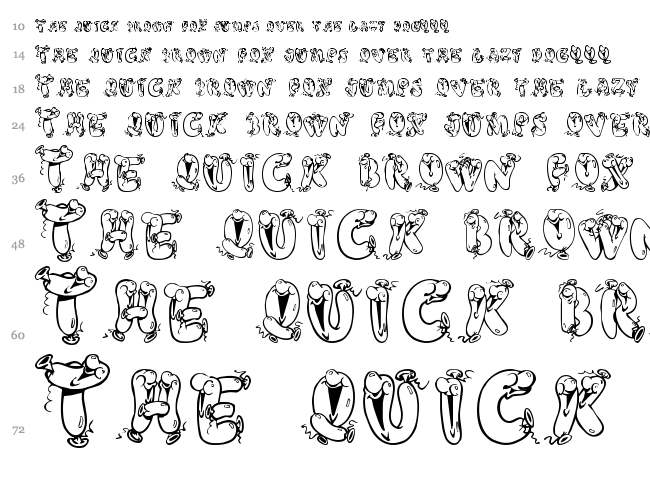 10 The quick brown fox jumps over the lazy dog!!!
14 The quick brown fox jumps over the lazy dog!!!
18 The quick brown fox jumps over the lazy
24 The quick brown fox jumps over
36 The quick brown fox
48 The quick brown
60 The quick br
72 The quick